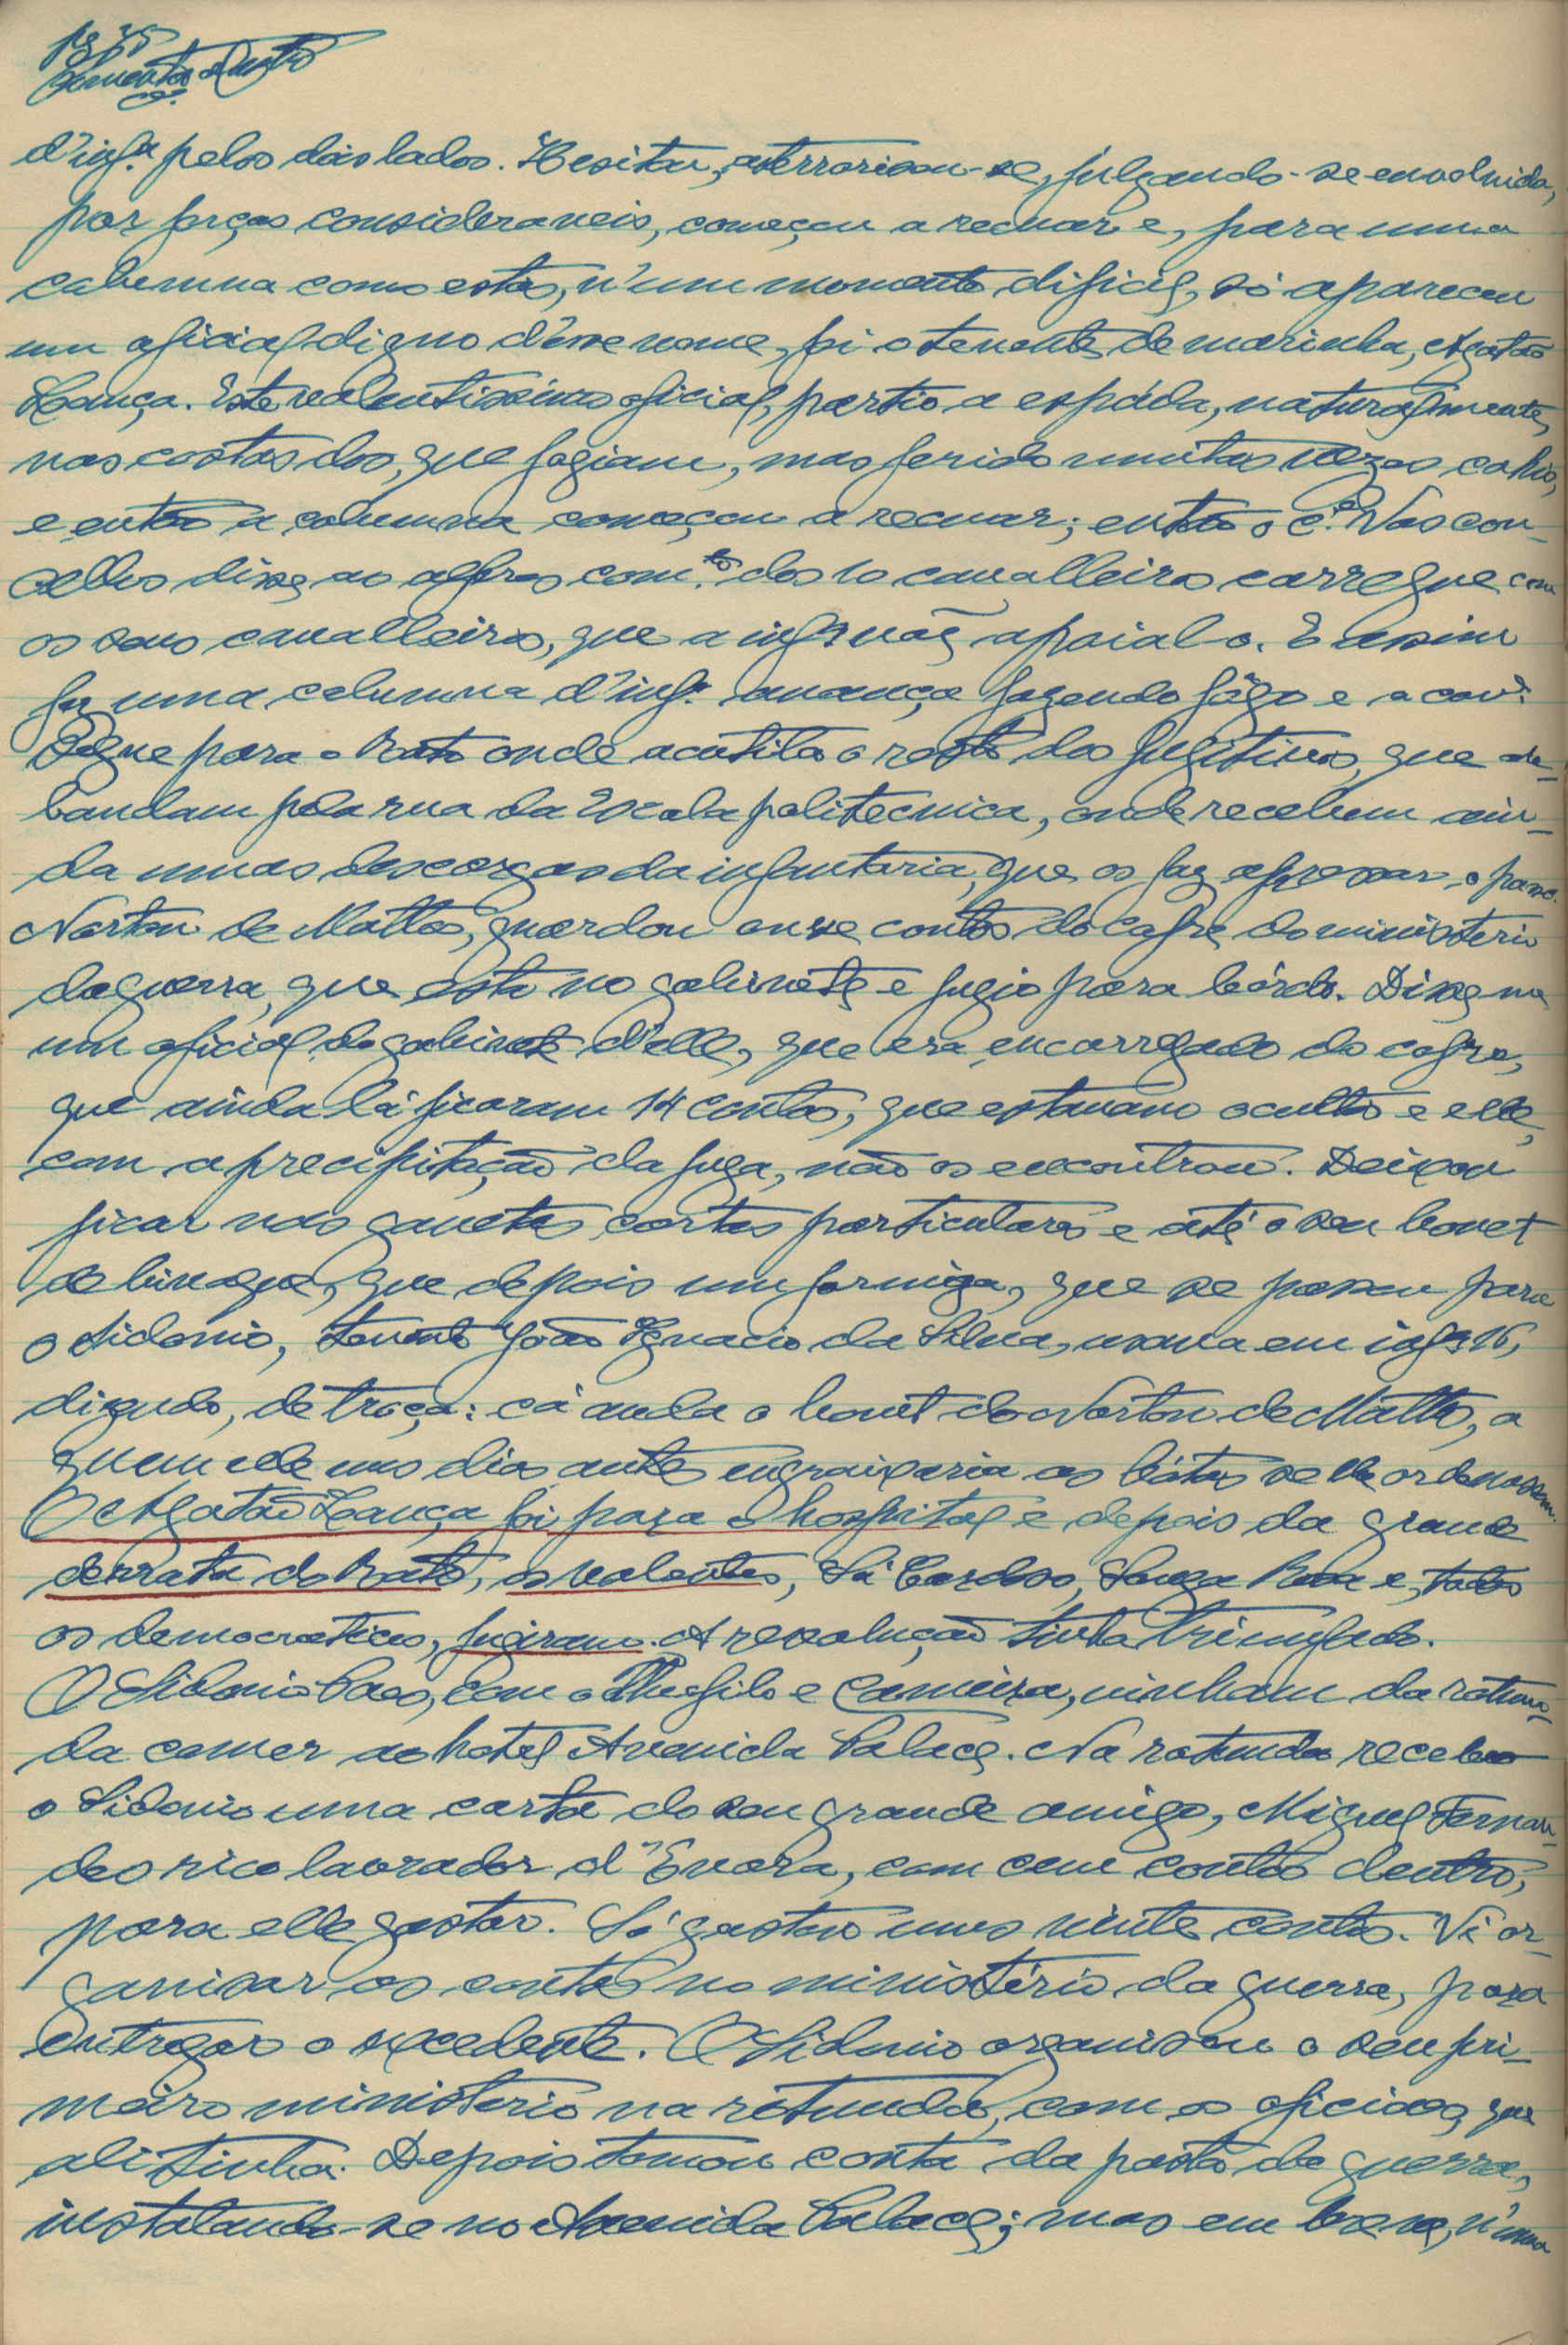 d'inf.ª pelos dois lados. Hesitou, aterrorisou-se, julgando-se envolvida,
por forças consideraveis, começou a recuar e, para uma
columna como esta, n'um momento dificil, só apareceu
um oficial digno d'esse nome, foi o tenente de marinha, Agatão
Lança. Este valentissimo oficial, partio a espáda, naturalmente,
nas costas dos, que fugiam, mas ferido muitas vezes cahio,
e então a columna começou a recuar; então o c.el Vascon-
cellos disse ao alferes com.te dos 10 cavalleiros carregue com
os seus cavalleiros, que a inf.ª vae apoial-o. E assim
foi uma columna d'inf.ª avança fazendo fôgo e a cav.ª
Segue para o Rato onde acutila o resto dos fugitivos, que de-
bandam pela rua da Escola politecnica, onde recebem ain-
da umas descargas da infantaria, que os faz apressar o passo.
Norton de Mattos, guardou onze contos do cofre do ministerio
da guerra, que está no gabinete e fugio para bórdo. Disse-me
um oficial do gabinete d'elle, que era encarregado do cofre,
que ainda lá ficaram 14 contos, que estavam ocultos e elle,
com a precipitação da fuga, não os encontrou. Deixou
ficar nas gavetas cartas particulares e até o seu bonet
de bivaque, que depois um formiga, que se passou para
o Sidonio, tenente João Ignacio da Silva, usava em inf.ª 16,
dizendo, de troça: cá anda o bonet do Norton de Mattos, a
quem elle uns dias antes engraixaria as bótas se lhe ordenassem.
O Agatão Lança foi para o hospital e depois da grande
derrota do Rato, os valentes, Sá Cardoso, Souza Rosa e, todos
os democraticos, fugiram. A revolução tinha triumfado.
O Sidonio Paes, com o Theofilo e Cameira, vinham da rotun-
da comer ao hotel Avenida Palace. Na rotunda recebeo
o Sidonio uma carta do seu grande amigo, Miguel Fernan-
des rico lavrador d'Evora, com cem contos dentro,
para elle gastar. Só gastou uns vinte contos. Vi or-
ganisar as contas no ministério da guerra, para
entregar o excedente. O Sidonio organisou o seu pri-
meiro ministerio na rotunda, com os oficiaes, que
ali tinha. Depois tomou conta da pasta da guerra,
instalando-se no Avenida Palace; mas em breve, n'uma